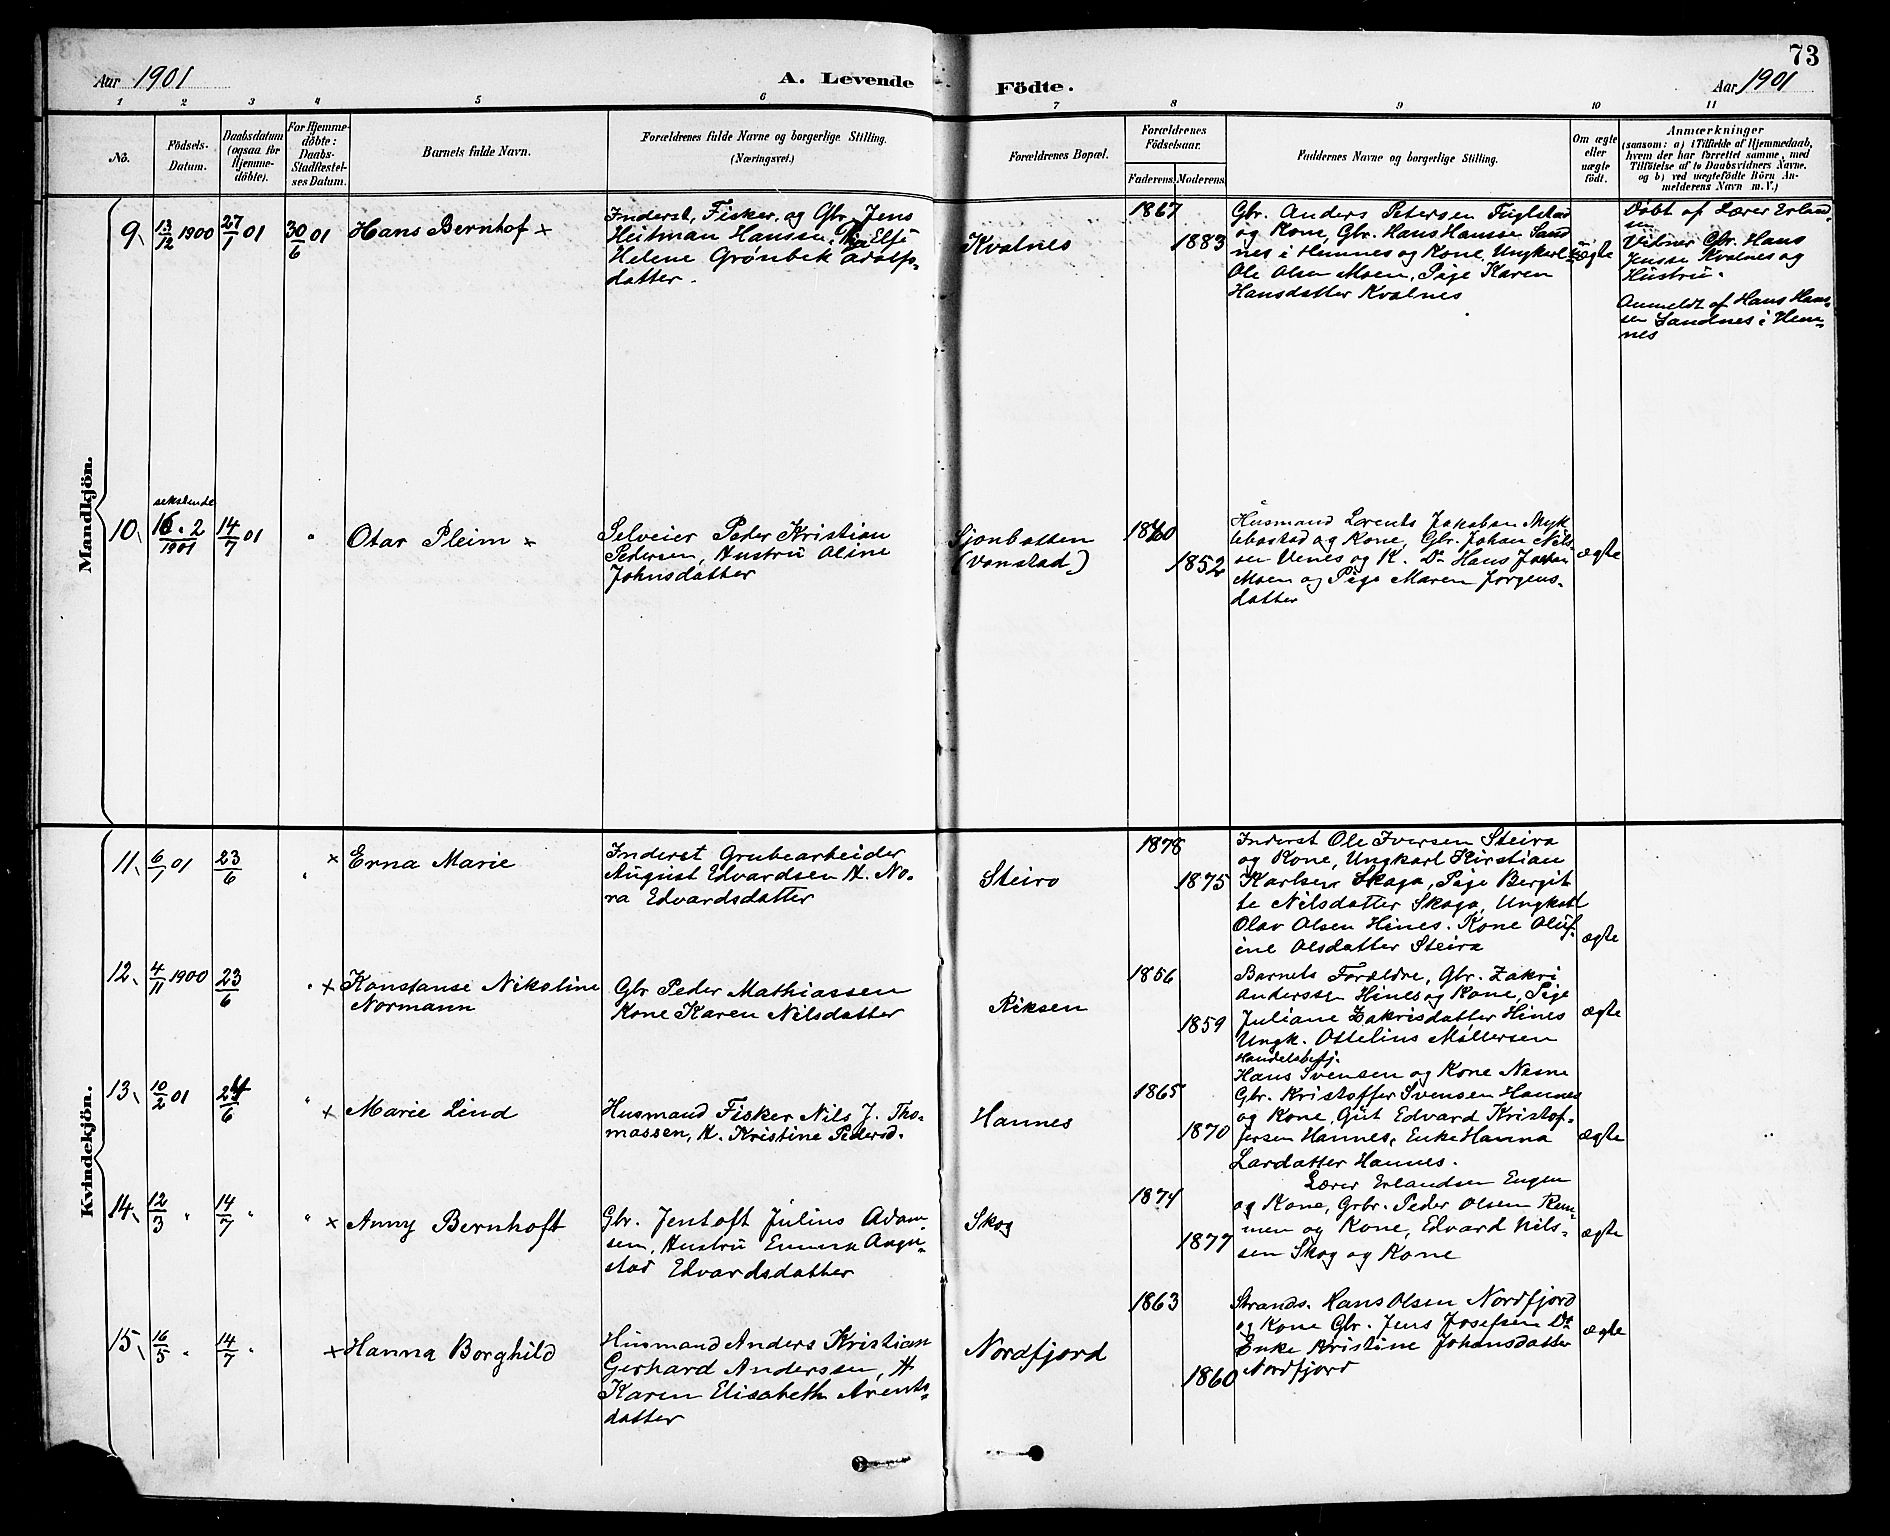 73
Aar 1901
A. Levende
Födte.
Aar 1901
1 2 3 4 5 6 7 8 9 10 11
No.
Födsels-
Datum.
Daabsdatum
(ogsaa for
Hjemme-
döbte).
For Hjemme-
döbte:
Daabs-
Stadfæstel-
ses Datum.
Barnets fulde Navn.
Forældrenes fulde Navne og borgerlige Stilling.
(Næringsvei.)
Forældrenes Bopæl.
Forældrenes
Födselsaar.
Faderens. Moderens.
Faddernes Navne og borgerlige Stilling.
Om ægte
eller
uægte
födt.
Anmærkninger
(saasom: a) i Tilfælde af Hjemmedaab,
hvem der har forrettet samme, med
Tilföielse af to Daabsvidners Navne.
og b) ved uægtefödte Börn An-
melderens Navn m. V.)
Mandkjön.
9. 13/12 1900 27/1 01 30/6 01
Hans Bernhof x
Inderst, Fisker, og Gbr. Jens
Heitman Hanssen, Pige Elfi
Helene Grønbek Adolfs-
datter.
Kvalnes
1867
1883
Gbr. Anders Petersen Fuglstad
og Kone, Gbr. Hans Hansse Sand
nes i Hemnes og Kone, Ungkarl
Ole Olsen Moen, Pige Karen
Hansdatter Kvalnes
uægte
Døbt af Lærer Erland-
sen
Vidner Gbr. Hans
Jensse Kvalnes og
Hustru.
Anmeldt af Hans Hans-
sen Sandnes i Hem-
nes
10. sekstende
16. 2 1901 14/7 01 "
Otar Pleim x
Selveier Peder Kristian
Pedersen, Hustru Oline
Johnsdatter
Sjonbotten
(Vonstad)
1860
1852
Husmand Lorents Jakobsn Myk
lebostad og Kone, Gbr. Johan Nils-
sen Venes og K. Do Hans Johan
Moen og Pige Maren Jørgens-
datter
ægte
Kvindekjön.
11. 6/1 01 23/6 "
x Erna Marie
Inderst Grubearbeider
August Edvardsen H. No-
ra Edvardsdatter
Steiro
1878
1875
Inderst Ole Iversen Steira
og Kone, Ungkarl Kirstian
Karlsen Skaga, Pige Bergit
te Nilsdatter Skaga, Ungkarl
Olav Olsen Hines. Kone Oluf-
ine Olsdatter Steira
ægte
12. 4/11 1900 23/6 "
x Konstanse Nikoline
Normann
Gbr Peder Mathiassen
Kone Karen Nilsdatter
Riksen
1856
1859
Barnets Forældre, Gbr. Zakri
Anderssen Hines og Kone, Pige
Juliane Zakrisdatter Hines
Ungk. Ottelius Möllersen
ægte
13. 10/2 01 24/6 "
x Marie Lind
Husmand Fisker Nils J. Tho-
massen, H. Kristine Pedersd.
Hannes
1865
1870
Handelsbetj.
Hans Svensen og Kone Nesne
Gbr. Kristoffer Svensen Hannes
og Kone, Gut Edvard Kristof-
fersen Hannes, Enke Hanna
Larsdatter Hannes.
ægte
14. 12/3 " 14/7 " "
x Anny Bernhoft
Gbr. Jentoft Julius Adam-
sen, Hustru Emma Augu-
sta Edvardsdatter
Skog
1874
1877
Lærer Erlandsen Engen
og Kone, Grbr. Peder Olsen Rem-
men og Kone, Edvard Nils-
sen Skog og Kone
ægte
15. 16/5 " 14/7 "
x Hanna Borghild
Husmand Anders Kristian
Gerhard Anderssen, H
Karen Elisabeth Arents-
datter
Nordfjord
1863
1860
Strands. Hans Olsen Nordfjord
og Kone Gbr. Jens Josefsen Do
Enke Kristine Johansdatter
Nordfjord
ægte